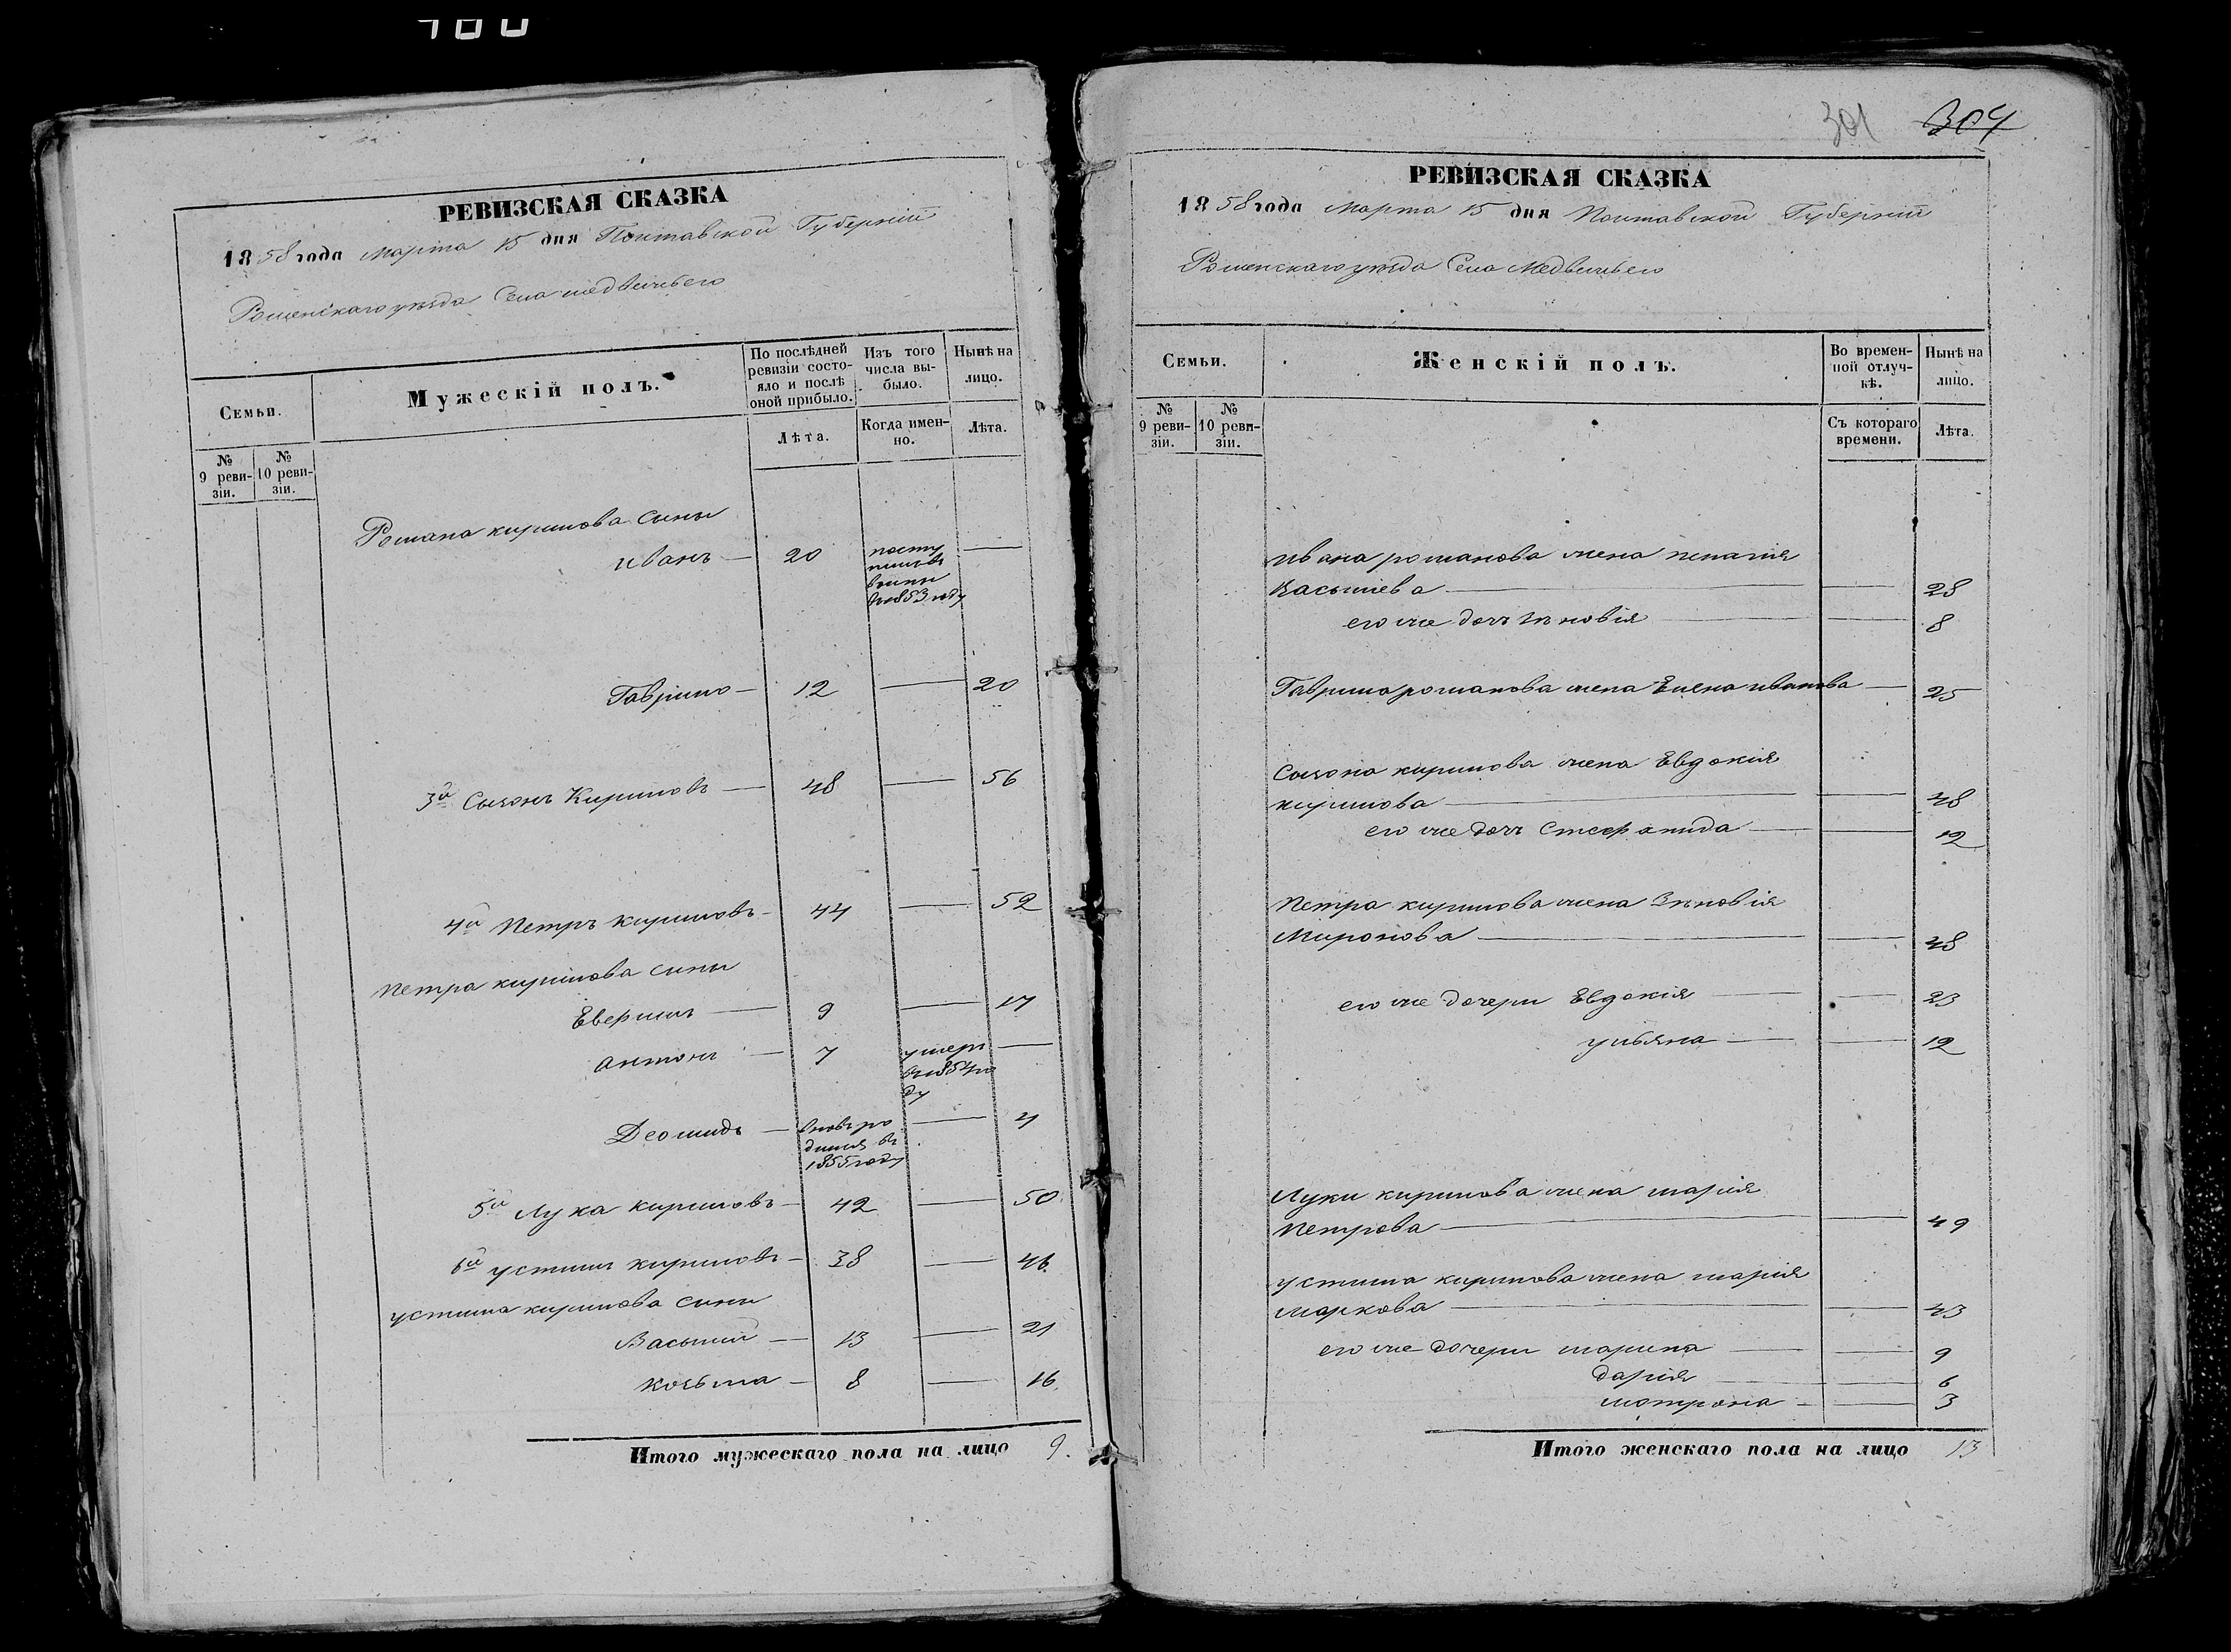 РЕВИЗСКАЯ СКАЗКА
1858 года марта 15 дня Полтавской Губерніи
Роменскаго уезда Села медвежьего
Семьи.
№ 9 ревизіи.
№ 10 ревизіи.
Мужескій полъ.
По послѣдней ревизіи состояло и послѣ оной прибыло.
Изъ того числа выбыло.
Нынѣ на лицо.
Лѣта.
Когда именно.
Лѣта.
Романа кирилова сыны
иванъ — 20 —
вои853 году
Гаврило — 12 — 20
3й Сызонъ Кириловъ — 48 — 56
4й Петръ кириловъ — 44 — 52
Петра кирилова сыны
9 — 17
антонъ — 7 умеръ в 1854 году —
Деомидъ — вновь родился въ 1855 году — 4
5й Лука кириловъ — 42 — 50
6й устимъ кириловъ — 38 — 46
устима кирилова сыны
Василий — 13 — 21
козьма — 8 — 16
Итого мужескаго пола на лицо 9.
301 304
РЕВИЗСКАЯ СКАЗКА
1858 года марта 15 дня Полтавской Губерніи
Роменскаго уезда Села Медвежьего
Семьи.
№ 9 ревизіи.
№ 10 ревизіи.
Женскій полъ.
Во временной отлучкѣ.
Нынѣ на лицо.
Съ котораго времени.
Лѣта.
ивана романова жена пелагия
Васильева — — 28
его же доч зѣновія — — 8
Гаврила романова жена Елена иванова — 25
Сызона кирилова жена Евдокія
кирилова — — 48
его же доч Степанида — — 12
Петра кирилова жена Зѣновія
Миронова — — 48
его же дочери Евдокія — — 23
ульяна — — 12
Луки кирилова жена марія
Петрова — — 49
устима кирилова жена марія
маркова — — 43
его же дочери марина — — 9
дарія — — 6
мотрона — — 3
Итого женскаго пола на лицо 13